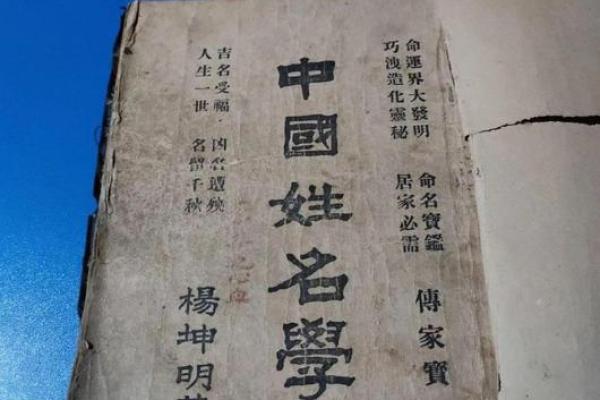 命運界大發明
巧洩造化靈秘
命名寶鑑
居家必需
傳家寶
中國姓名學
吉名受福·凶名遭殃
人生一世 名留千秋
楊坤明